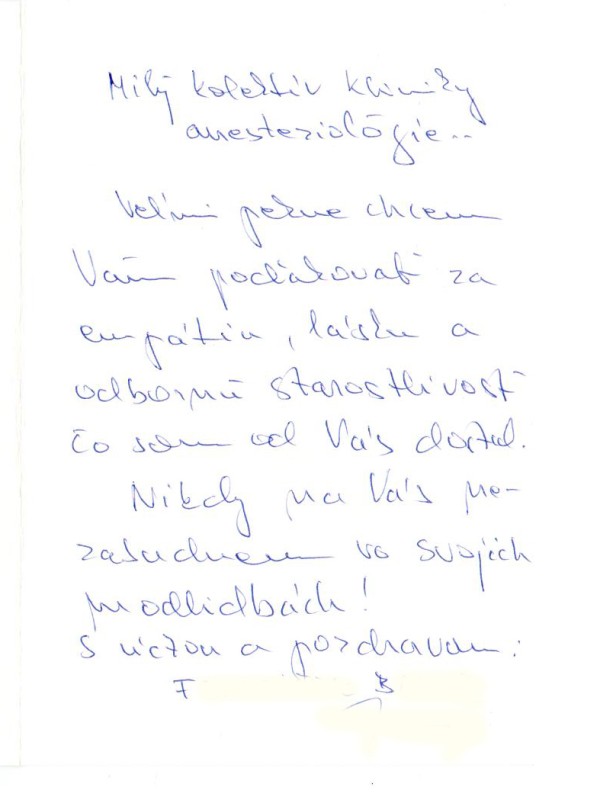 Milý kolektív kliniky
anesteziológie..
Veľmi pekne chcem
Vám poďakovať za
empátiu, lásku a
odbornú starostlivosť
čo som od Vás dostal.
Nikdy na Vás ne-
zabudnem vo svojich
modlidbách!
S úctou a pozdravom:
F B